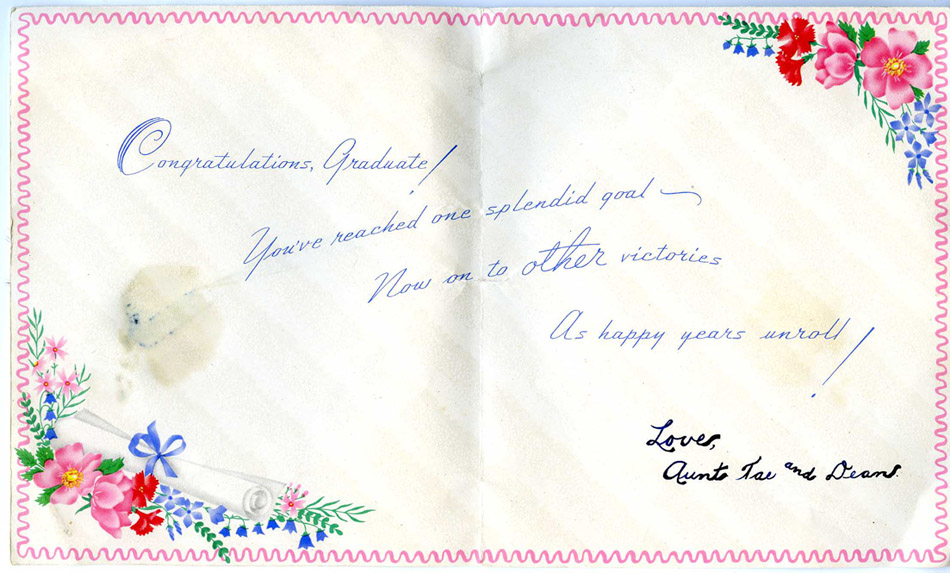 Congratulations, Graduate!
You've reached one splendid goal —
Now on to other victories
As happy years unroll!
Love,
Aunts Tae and Dean.